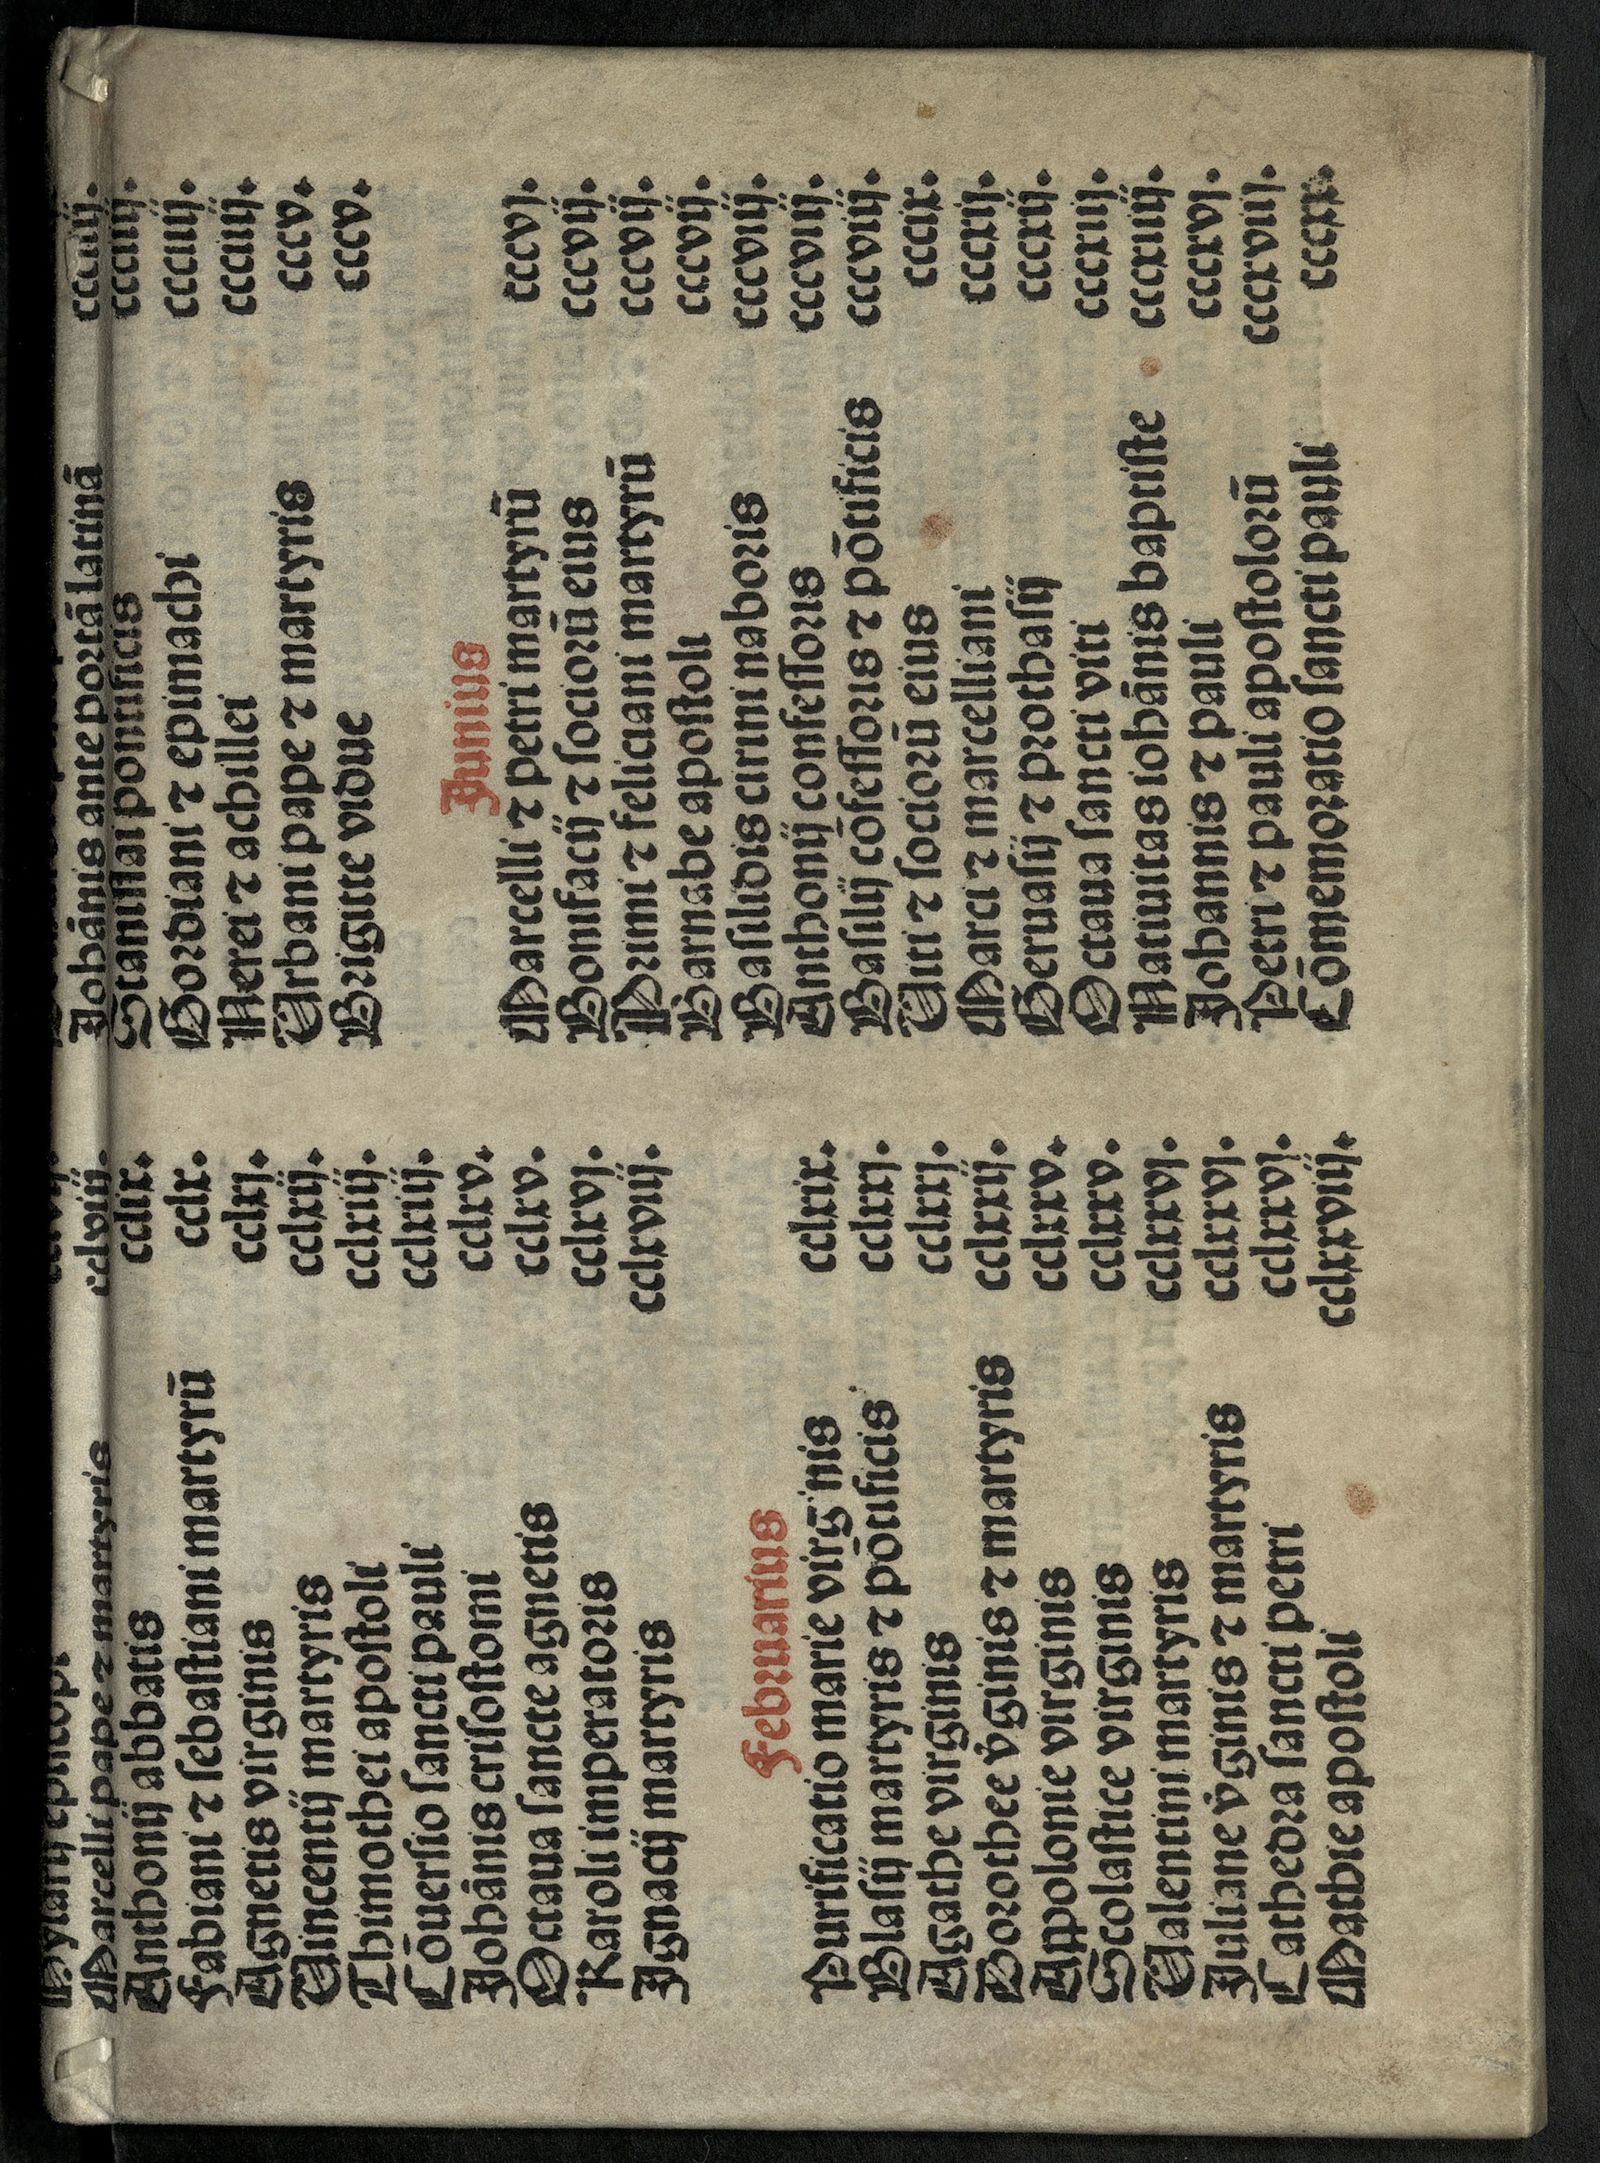 Marcelli pape ⁊ martyris cclviij.
Anthonij abbatis cclix.
Fabiani ⁊ sebastiani martyrū cclx.
Agnetis virginis cclxj.
Uincentij martyris cclxij.
Thimothei apostoli cclxiij.
Cōuersio sancti pauli cclxiij.
Johānis crisostomi cclxv.
Octaua sancte agnetis cclxv.
Karoli imperatoris cclxvj.
Ignacij martyris cclxviij.
Februarius
Purificatio marie virginis cclxix.
Blasij martyris ⁊ pōtificis cclxxj.
Agathe virginis cclxxj.
Dorothee v̄ginis ⁊ martyris cclxxij.
Appolonie virginis cclxxv.
Scolastice virginis cclxxv.
Ualentini martyris cclxxvj.
Juliane v̄ginis ⁊ martyris cclxxvj.
Cathedra sancti petri cclxxvj.
Mathie apostoli cclxxviij.
Johānis ante portā latinā ccciiij.
Stanislai pontificis ccciiij.
Gordiani ⁊ epimachi ccciiij.
Nerei ⁊ achillei ccciiij.
Urbani pape ⁊ martyris cccv.
Brigitte vidue cccv.
Junius
Marcelli ⁊ petri martyrū cccvj.
Bonifacij ⁊ sociorū eius cccvij.
Primi ⁊ feliciani martyrū cccvij.
Barnabe apostoli cccvij.
Basilidis cirini naboris cccviij.
Anthonij confessoris cccviij.
Basilij cōfessoris ⁊ pōtificis cccviij.
Uiti ⁊ sociorū eius cccix.
Marci ⁊ marcelliani cccxij.
Geruasij ⁊ prothasij cccxij.
Octaua sancti viti cccxiij.
Natiuitas iohānis baptiste cccxiiij.
Johannis ⁊ pauli cccxvj.
Petri ⁊ pauli apostolorū cccxviij.
Cōmemoratio sancti pauli cccxx.